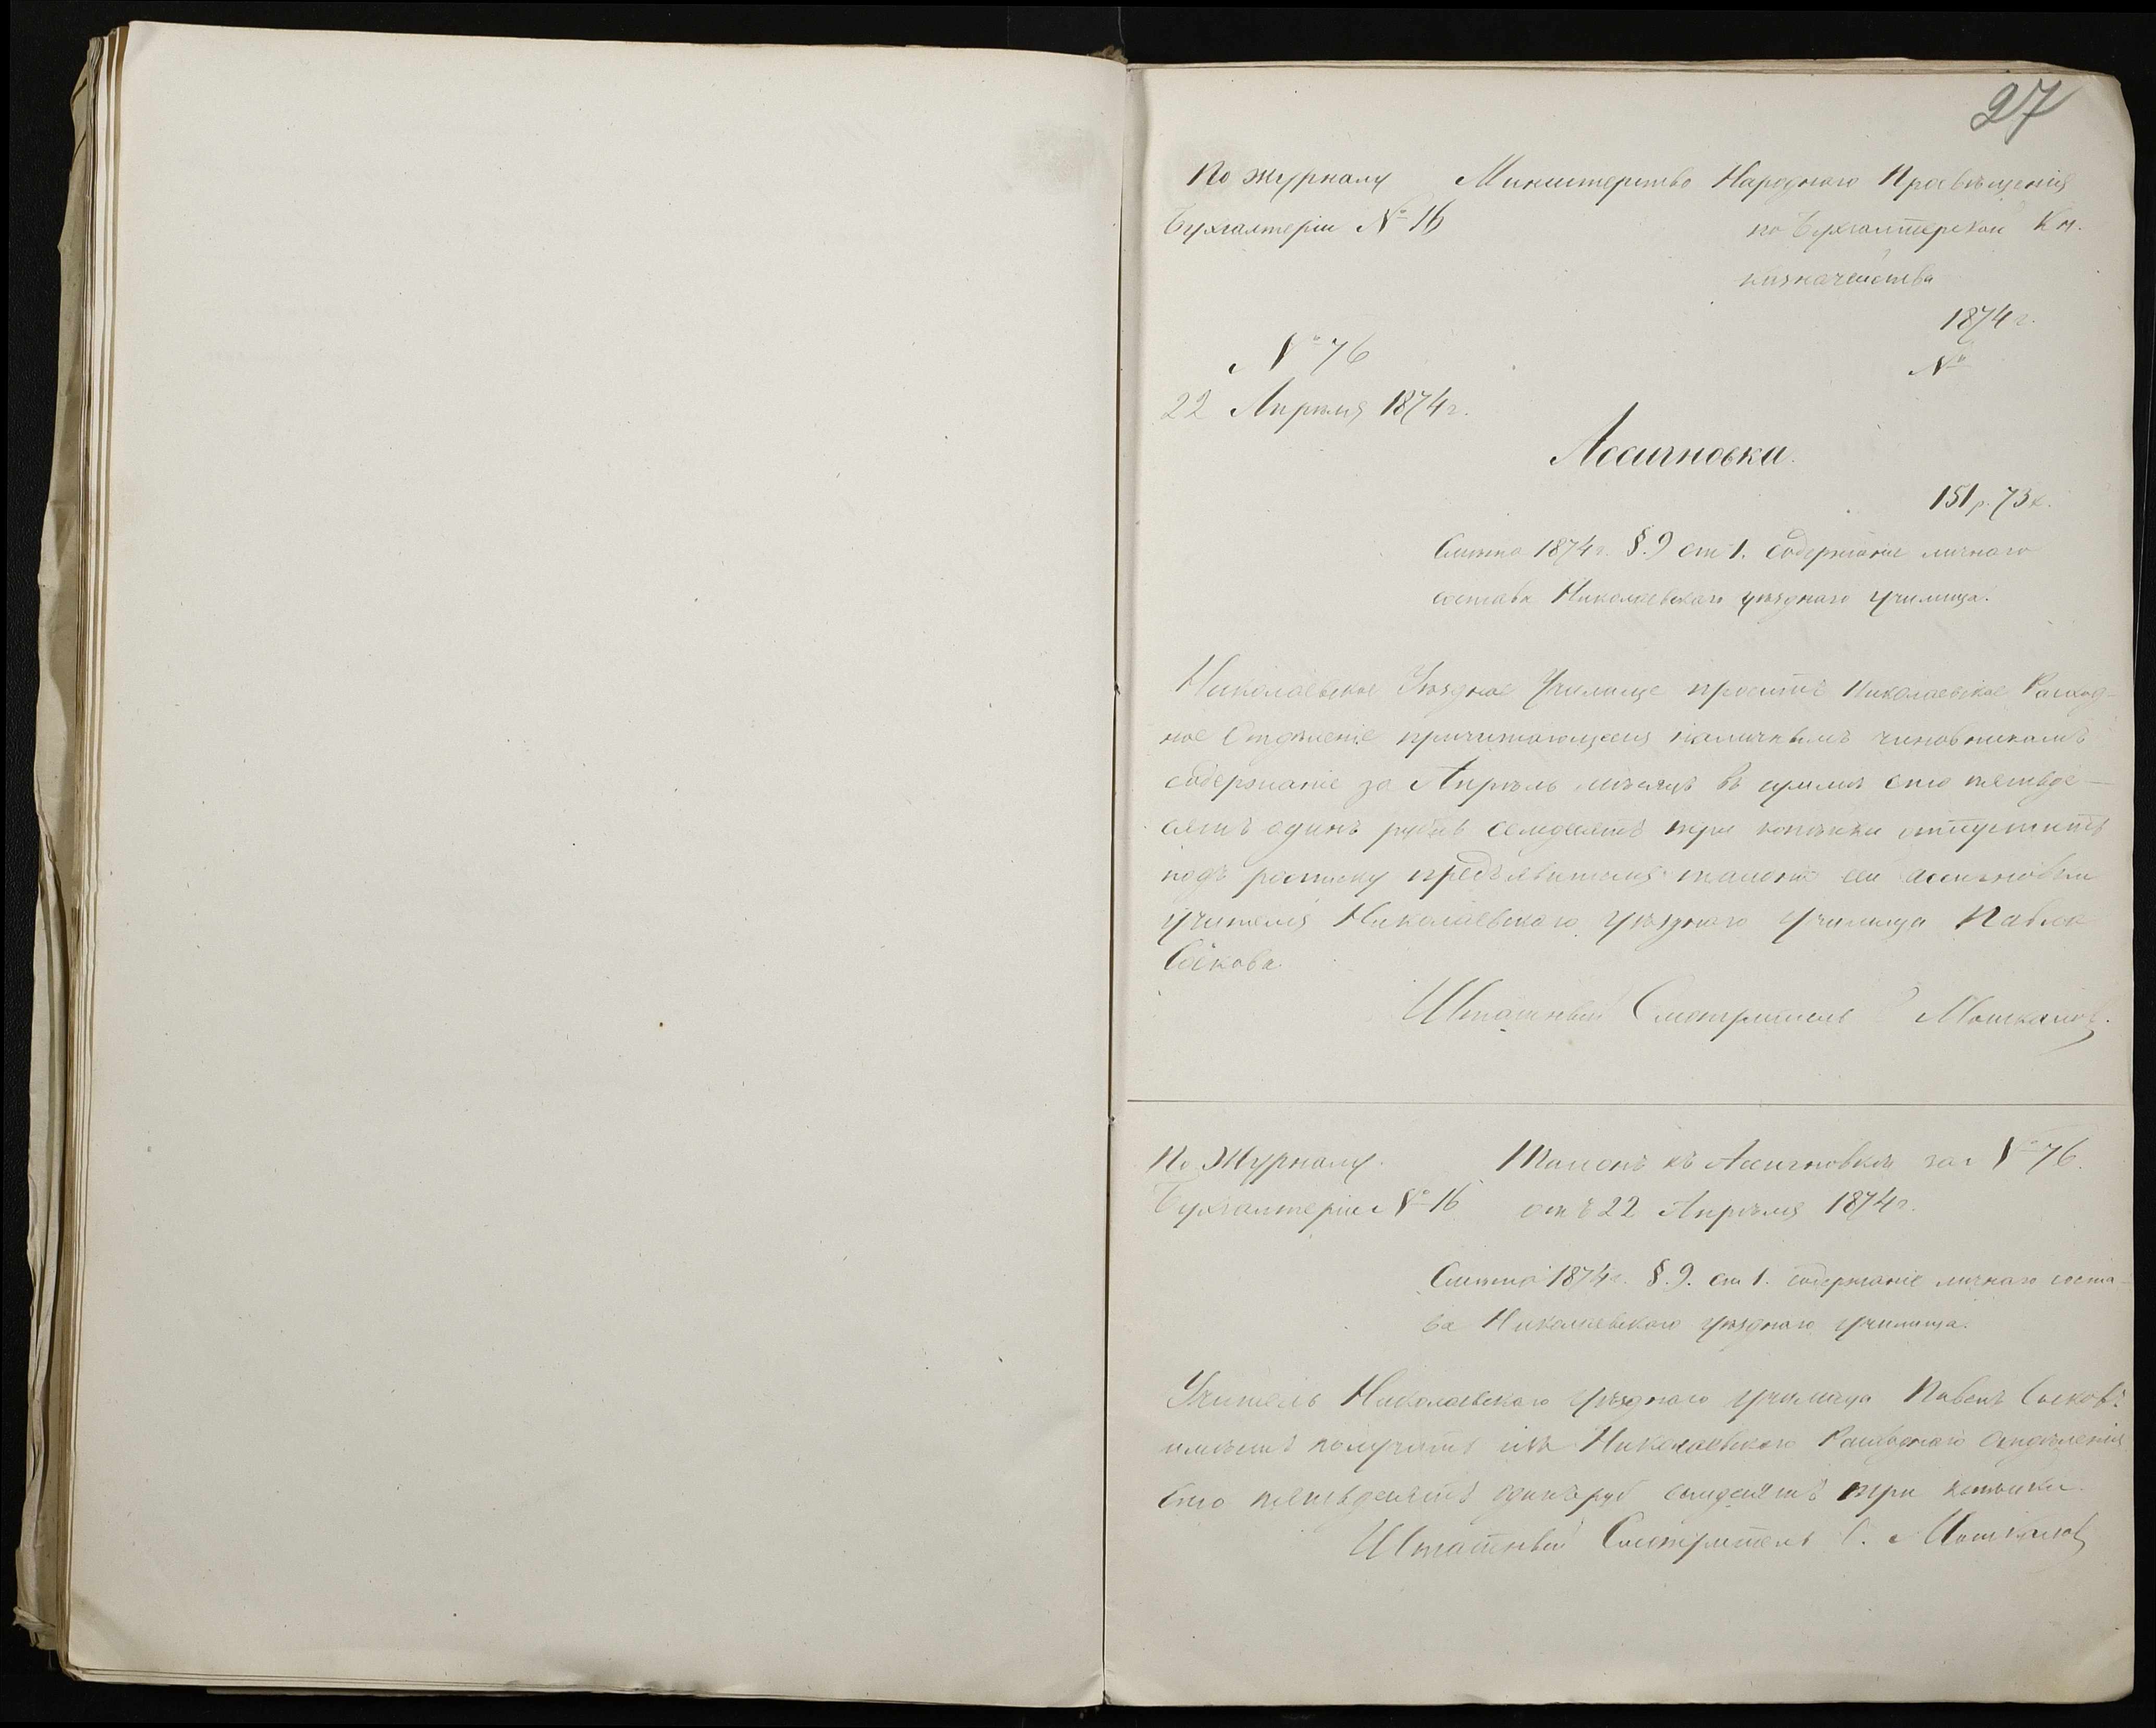 27
По журналу Министерство Народнаго Просвѣщенія
Бухгалтеріи № 16 по Бухгалтерской Кн.
казначейства
1874 г.
№
№ 76
22 Апрѣля 1874 г.
Ассигновка.
151 р. 73 к.
Смѣта 1874 г. §. 9 ст 1. содержаніе личнаго
состава Николаевскаго уѣзднаго училища.
Николаевское Уѣздное Училище проситъ Николаевское Расход-
ное Отдѣленіе причитающееся наличнымъ чиновникамъ
содержаніе за Апрѣль мѣсяцъ въ суммѣ сто пятьде-
сятъ одинъ рубль семдесятъ три копѣйки отпустить
подъ росписку предъявителя талона сей ассигновки
учителя Николаевскаго уѣзднаго училища Павла
Сёкова.
Штатный Смотритель Мошкалов.
По Журналу Талонъ къ Ассигновкѣ за № 76.
Бухгалтеріи № 16 отъ 22 Апрѣля 1874 г.
Смѣта 1874 г. §. 9. ст 1. содержаніе личнаго соста-
ва Николаевскаго уѣзднаго училища.
Учитель Николаевскаго уѣзднаго училища Павелъ Сьековъ
имѣетъ получить изъ Николаевскаго Расходнаго Отдѣленія
Сто пятьдесятъ одинъ руб семдесятъ три копѣйки.
Штатный Смотритель С. Мошкалов